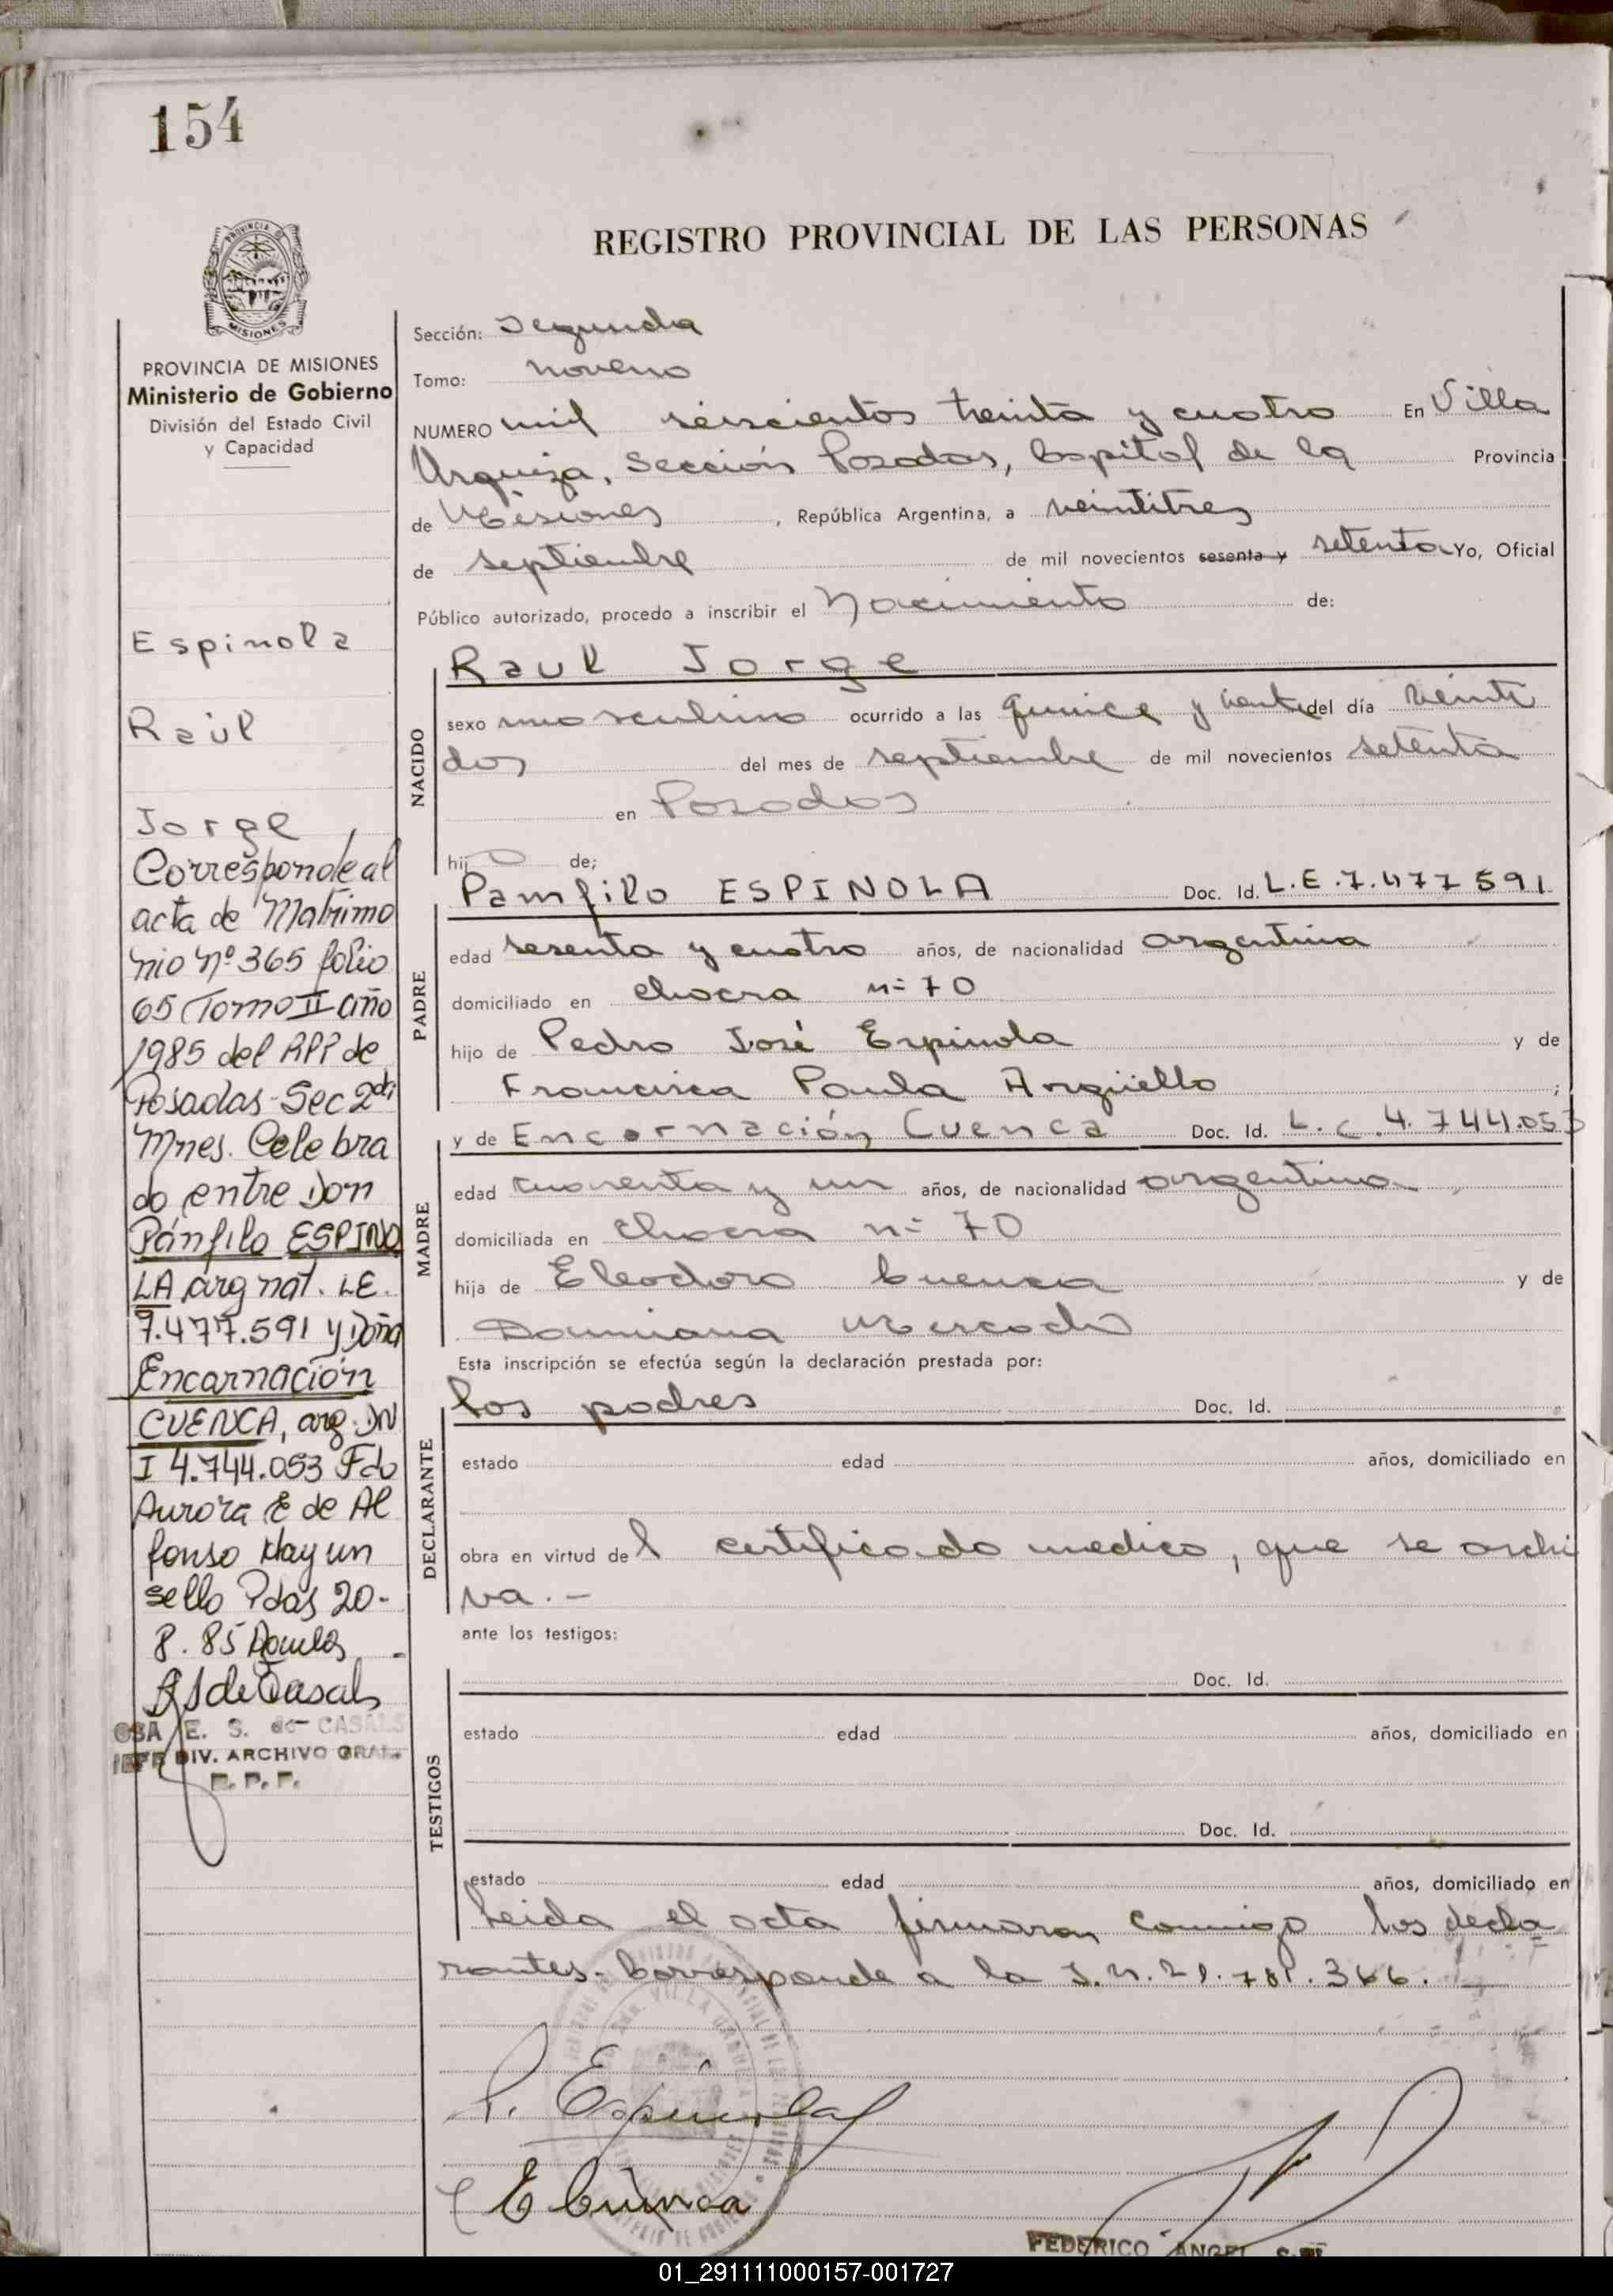 154
REGISTRO PROVINCIAL DE LAS PERSONAS
MISIONES
PROVINCIA DE MISIONES
Ministerio de Gobierno
División del Estado Civil
y Capacidad
Espinola
Raúl
Jorge
Corresponde al
acta de Matrimo
nio Nº 365 folio
65 Tomo II año
1985 del RPP de
Posadas-Sec 2da
Mnes. Celebra
do entre Don
Pánfilo ESPINO
LA arg nat. LE.
7.477.591 y Doña
Encarnación
CUENCA, arg. DN
I 4.744.053 Fdo
Aurora E de Al
fonso Hay un
sello Pdas 20-
8.85
E. S. de CASALS
JEFE DIV. ARCHIVO GRAL.
R. P. P.
Sección: Segunda
Tomo: noveno
NUMERO mil seiscientos treinta y cuatro En Villa
Urquiza, Sección Posadas, Capital de la Provincia
de Misiones, República Argentina, a veintitres
de septiembre de mil novecientos sesenta y setenta Yo, Oficial
Público autorizado, procedo a inscribir el Nacimiento de:
NACIDO
Raul Jorge
sexo masculino ocurrido a las quince y veinte del día veinti
dos del mes de septiembre de mil novecientos setenta
en Posadas
hijo de;
PADRE
Pamfilo ESPINOLA Doc. Id. L.E.7.477591
edad sesenta y cuatro años, de nacionalidad argentina
domiciliado en chacra nº 70
hijo de Pedro José Espinola y de
Francisca Paula Argüello ;
MADRE
y de Encarnación Cuenca Doc. Id. L.C.4.744.053
edad cuarenta y un años, de nacionalidad argentina
domiciliada en chacra nº 70
hija de Eleodoro Cuenca y de
Damiana Mercado
Esta inscripción se efectúa según la declaración prestada por:
DECLARANTE
los padres Doc. Id.
estado edad años, domiciliado en
obra en virtud del certificado medico, que se archi
va.-
ante los testigos:
TESTIGOS
Doc. Id.
estado edad años, domiciliado en
Doc. Id.
estado edad años, domiciliado en
Leida el acta firmaron conmigo los decla
rantes. Corresponde a la
P. Espinola
E Cuenca
FEDERICO ANGEL
01_291111000157-001727